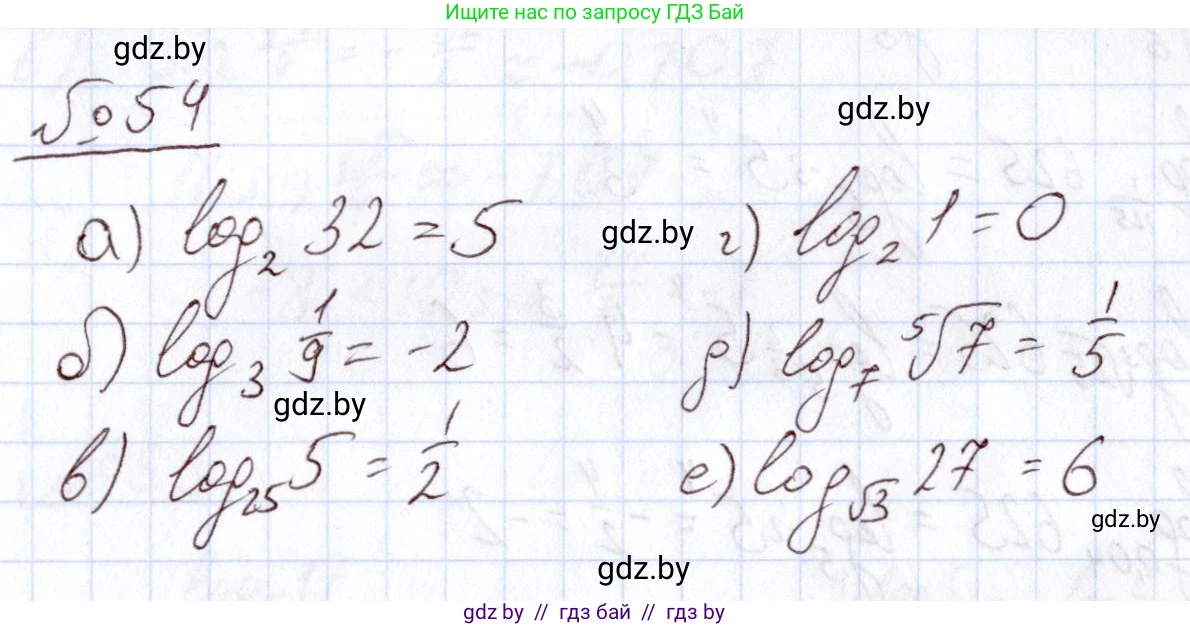 Ищите нас по запросу ГДЗ Бай
gdz.by
№ 54
gdz.by
а) log₂ 32 = 5
gdz.by
г) log₂ 1 = 0
б) log₃ 1/9 = -2
д) log₇ ⁵√7 = 1/5
gdz.by
в) log₂₅ 5 = 1/2
е) log_√3 27 = 6
gdz.by
gdz.by
gdz.by // гдз бай // гдз by